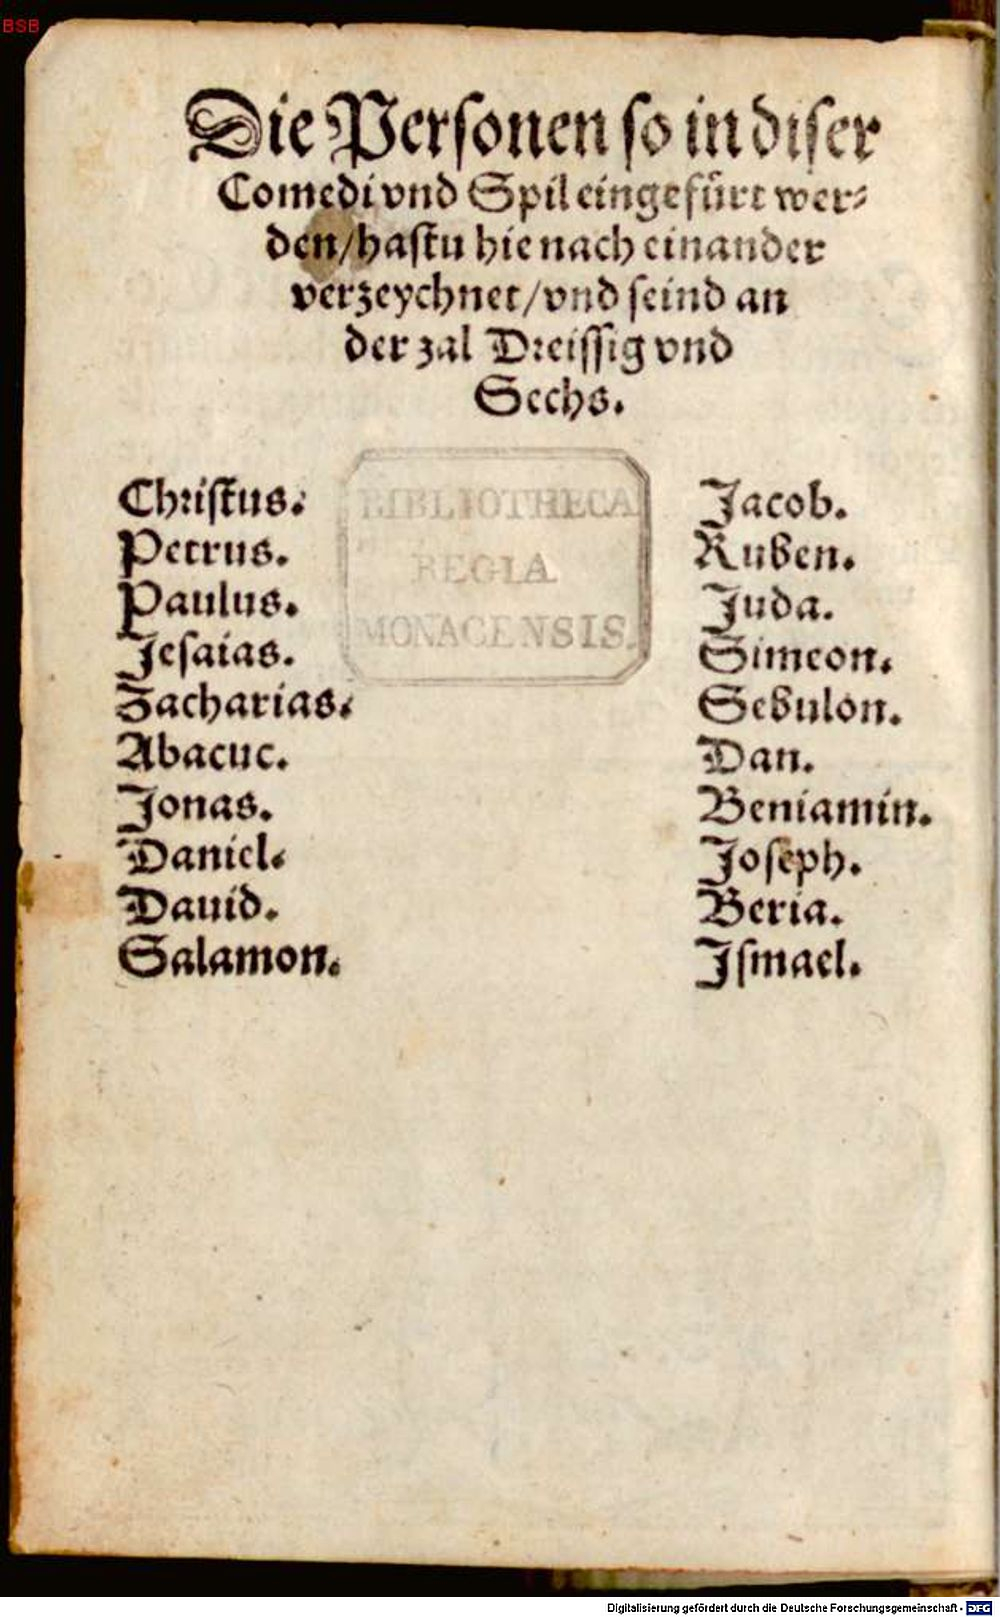 BSB
Die Personen so in diser
Comedi vnd Spil eingefürt wer⸗
den/hastu hie nach einander
verzeychnet/vnd seind an
der zal Dreissig vnd
Sechs.
Christus.
Petrus.
Paulus.
Jesaias.
Zacharias.
Abacuc.
Jonas.
Daniel.
Dauid.
Salamon.
BIBLIOTHECA
REGIA
MONACENSIS.
Jacob.
Ruben.
Juda.
Simeon.
Sebulon.
Dan.
Beniamin.
Joseph.
Beria.
Ismael.
Digitalisierung gefördert durch die Deutsche Forschungsgemeinschaft - DFG